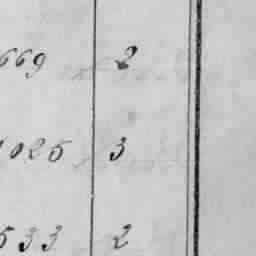 669 2
1025 3
533 2